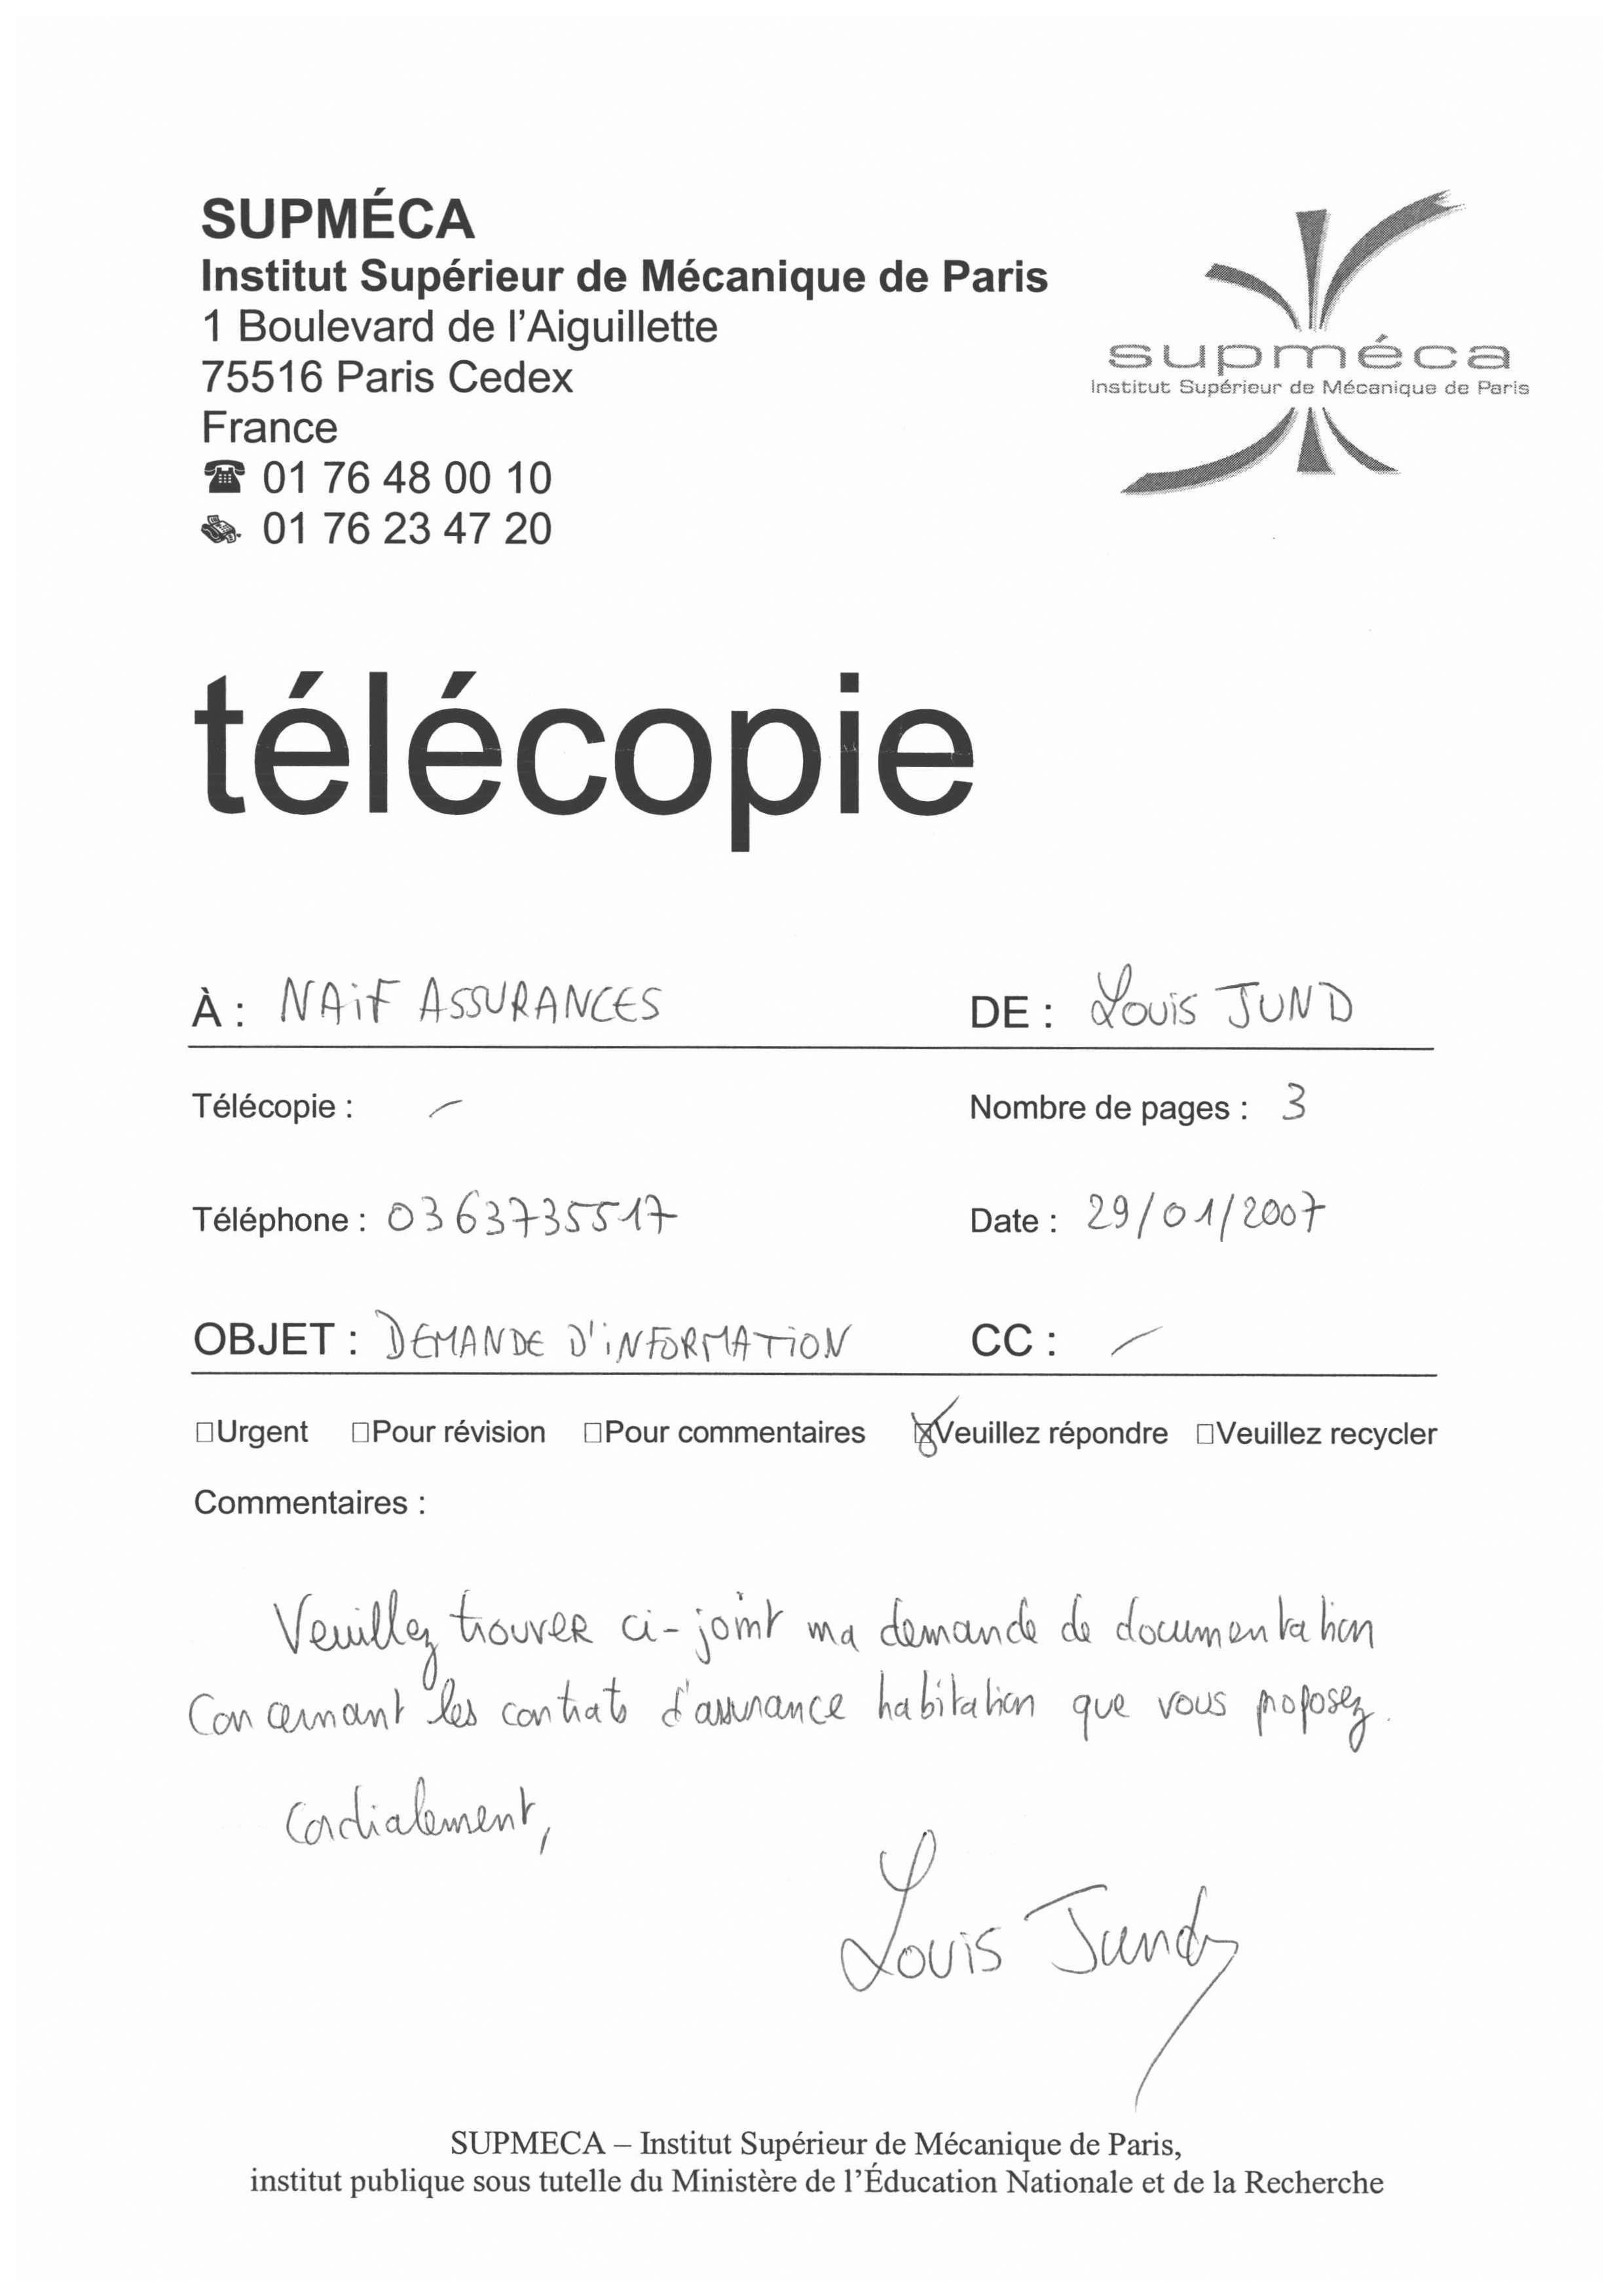 SUPMÉCA
Institut Supérieur de Mécanique de Paris
1 Boulevard de l'Aiguillette
75516 Paris Cedex
France
01 76 48 00 10
01 76 23 47 20
supméca
Institut Supérieur de Mécanique de Paris
télécopie
À : NAiF ASSURANCES DE : Louis JUND
Télécopie : - Nombre de pages : 3
Téléphone : 0363735517 Date : 29/01/2007
OBJET : DEMANDE D'iNFORMATiON CC : -
□Urgent □Pour révision □Pour commentaires ☒Veuillez répondre □Veuillez recycler
Commentaires :
Veuillez trouver ci-joint ma demande de documentation
Concernant les contrats d'assurance habitation que vous proposez.
Cordialement,
Louis Jund
SUPMECA – Institut Supérieur de Mécanique de Paris,
institut publique sous tutelle du Ministère de l'Éducation Nationale et de la Recherche